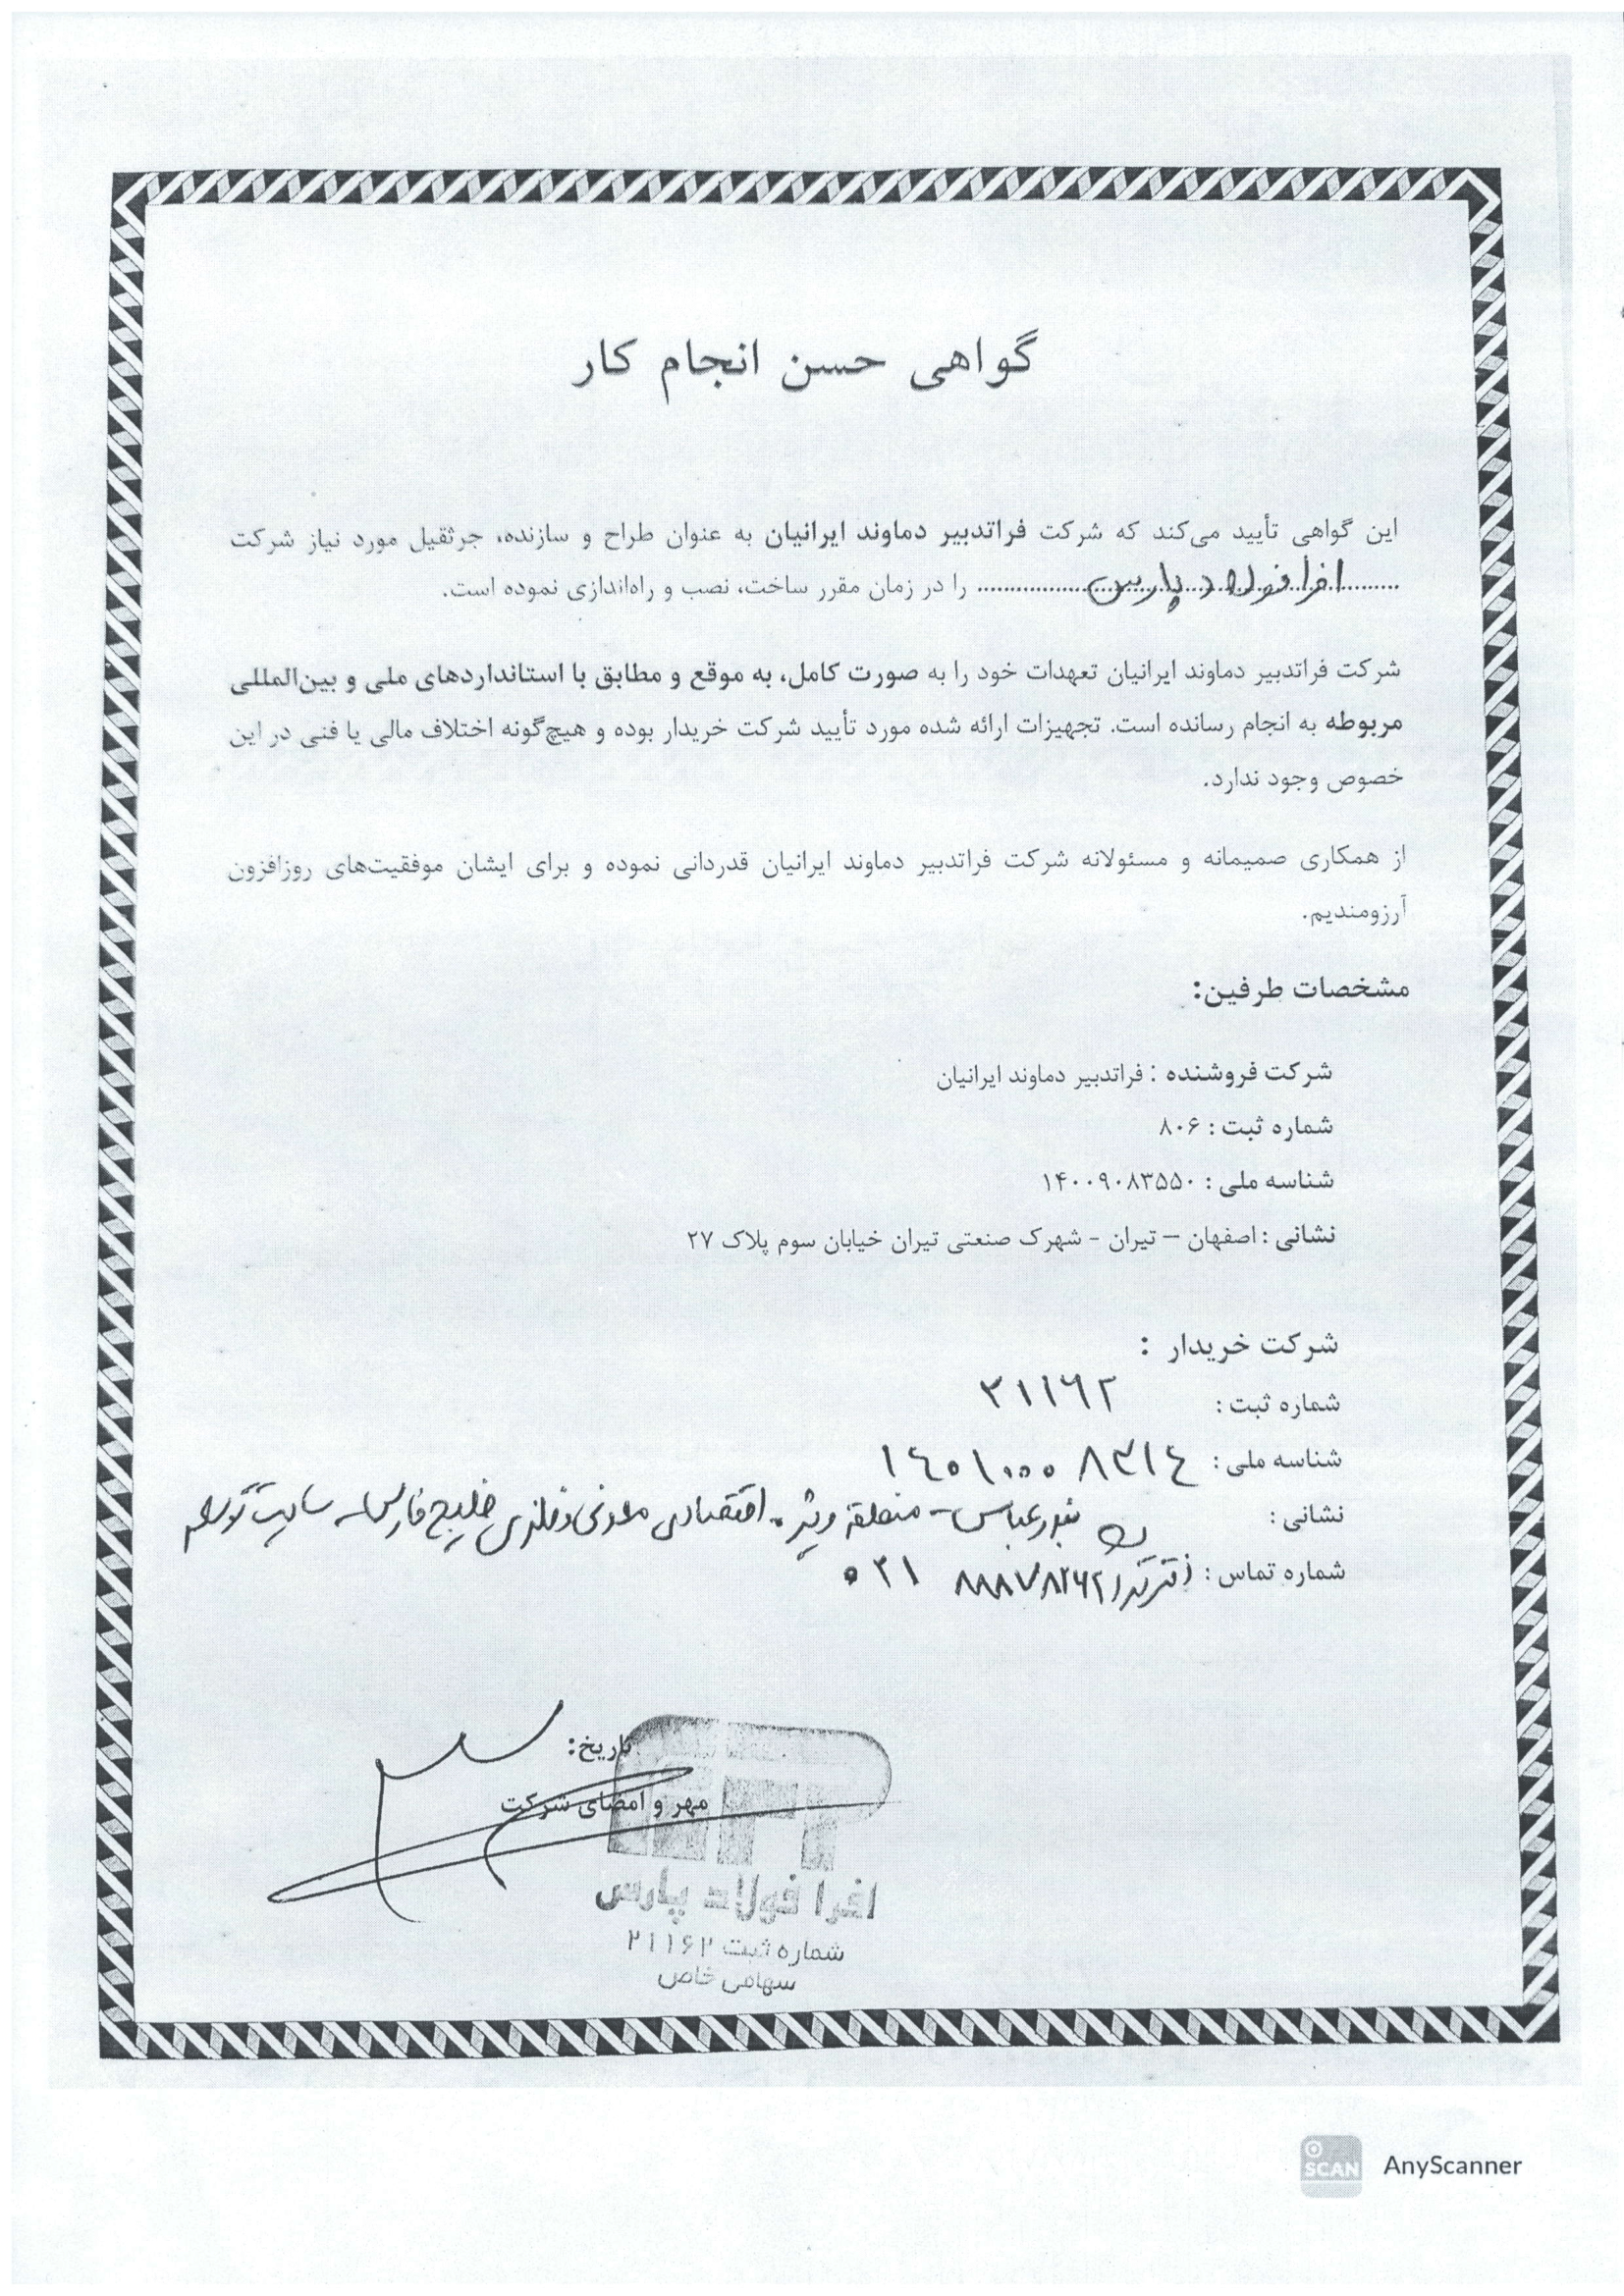 گواهی حسن انجام کار
این گواهی تأیید می‌کند که شرکت فراتدبیر دماوند ایرانیان به عنوان طراح و سازنده، جرثقیل مورد نیاز شرکت
.......افرا فولاد پارس....... را در زمان مقرر ساخت، نصب و راه‌اندازی نموده است.
شرکت فراتدبیر دماوند ایرانیان تعهدات خود را به صورت کامل، به موقع و مطابق با استانداردهای ملی و بین‌المللی
مربوطه به انجام رسانده است. تجهیزات ارائه شده مورد تأیید شرکت خریدار بوده و هیچ‌گونه اختلاف مالی یا فنی در این
خصوص وجود ندارد.
از همکاری صمیمانه و مسئولانه شرکت فراتدبیر دماوند ایرانیان قدردانی نموده و برای ایشان موفقیت‌های روزافزون
آرزومندیم.
مشخصات طرفین:
شرکت فروشنده : فراتدبیر دماوند ایرانیان
شماره ثبت : ۸۰۶
شناسه ملی : ۱۴۰۰۹۰۸۳۵۵۰
نشانی : اصفهان – تیران - شهرک صنعتی تیران خیابان سوم پلاک ۲۷
شرکت خریدار :
شماره ثبت : ۲۱۱۶۲
شناسه ملی : ۱۴۰۱۰۰۰۸۳۱۴
نشانی : بندرعباس - منطقه ویژه اقتصادی معدنی و فلزی خلیج فارس - سایت
شماره تماس : دفتر ۸۸۸۷۸۲۶۲ ۰۲۱
تاریخ:
مهر و امضای شرکت
افرا فولاد پارس
شماره ثبت ۲۱۱۶۲
سهامی خاص
SCAN AnyScanner